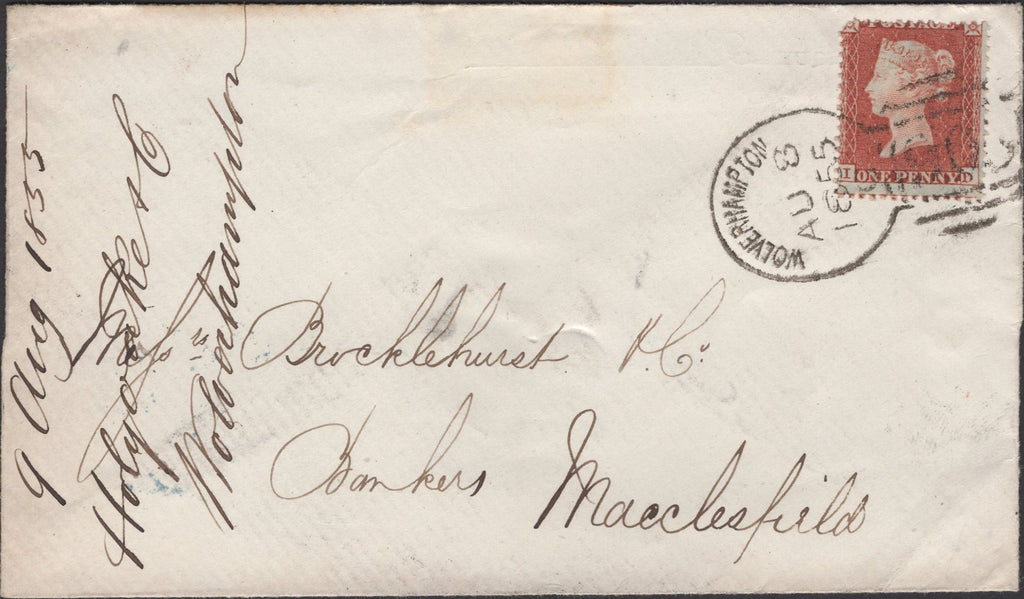 POSTAGE
I ONE PENNY D
WOLVERHAMPTON
AU 8
1855
Messrs Brocklehurst & Co.
Bankers
Macclesfield
9 Aug 1855
Holyoake & C
Wolverhampton